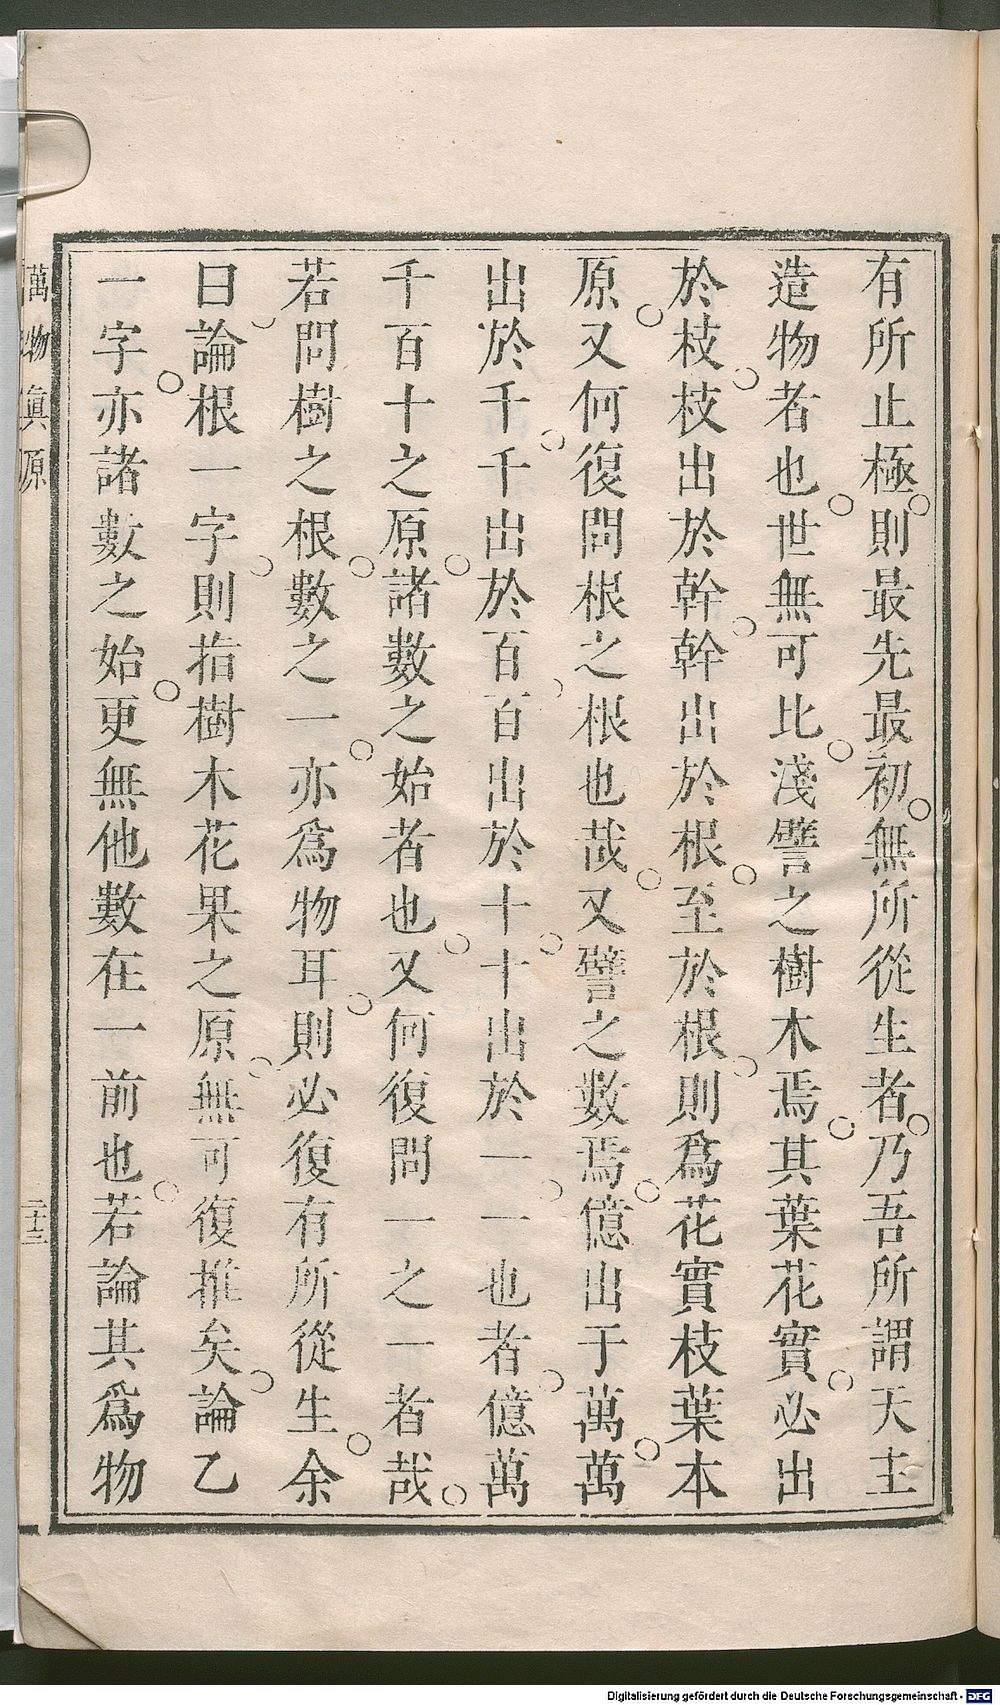 有所止極則最先最初無所從生者乃吾所謂天主
造物者也世無可比淺譬之樹木焉其葉花實必出
於枝枝出於幹幹出於根至於根則爲花實枝葉本
原又何復問根之根也哉又譬之數焉億出于萬萬
出於千千出於百百出於十十出於一一也者億萬
千百十之原諸數之始者也又何復問一之一者哉
若問樹之根數之一亦爲物耳則必復有所從生余
曰論根一字則指樹木花果之原無可復推矣論乙
一字亦諸數之始更無他數在一前也若論其爲物
萬物真原
二十三
Digitalisierung gefördert durch die Deutsche Forschungsgemeinschaft - DFG